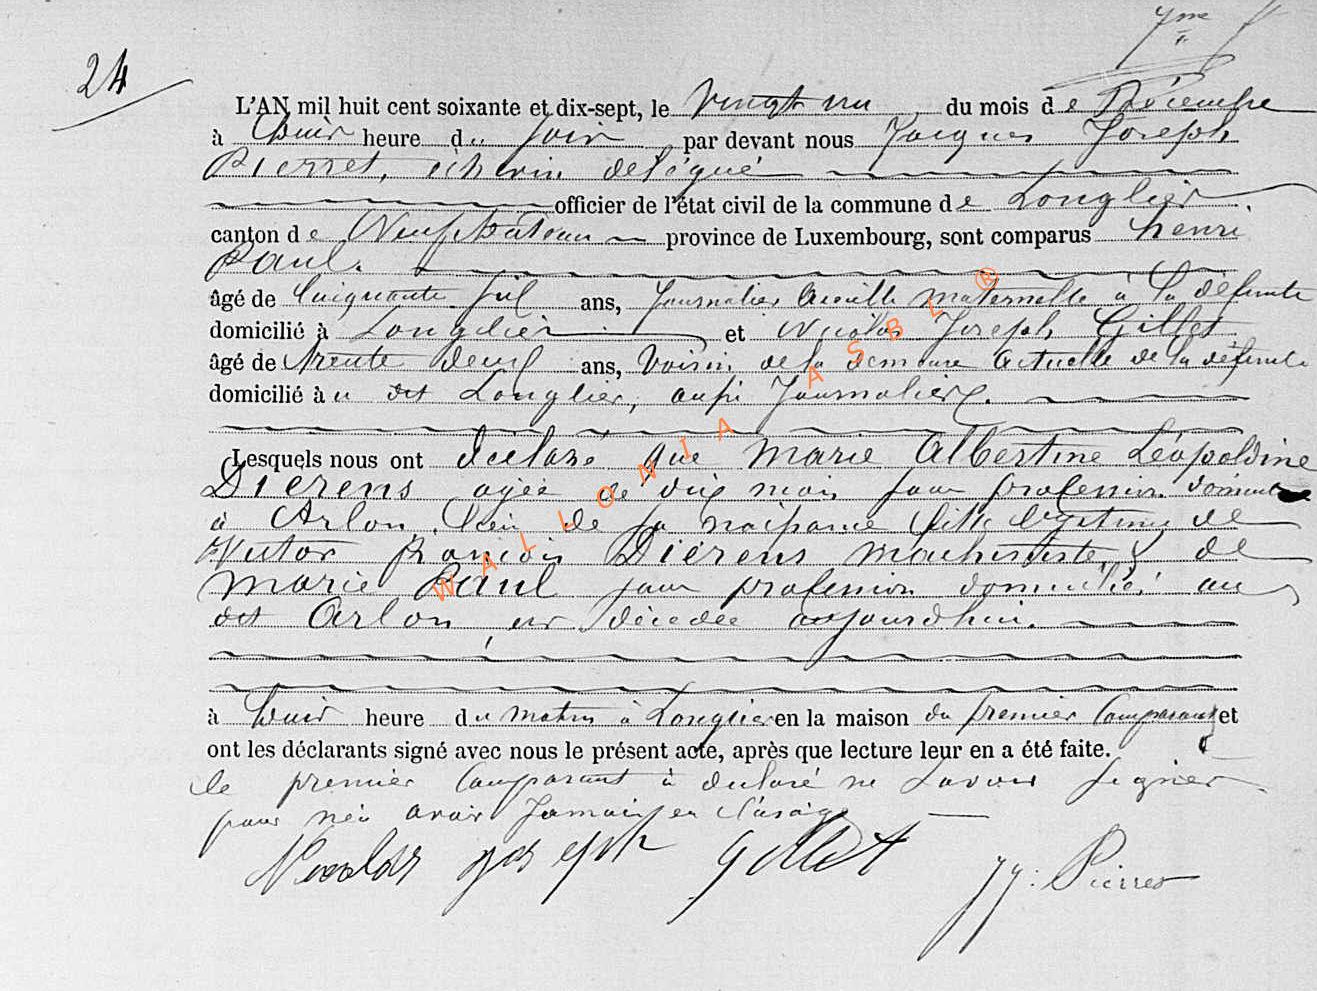 24
L'AN mil huit cent soixante et dix-sept, le vingt un du mois de Décembre
à huit heure du soir par devant nous Jacques Joseph
Pierret, échevin délégué
officier de l'état civil de la commune de Longlier
canton de Neufchâteau province de Luxembourg, sont comparus henri
Paul.
âgé de Cinquante six ans, Journalier maternelle à la défunte
domicilié à Longlier et Nicolas Joseph Gillet
âgé de trente deux ans, Voisin de la demeure actuelle de la défunte
domicilié à u dit Longlier, aussi Journalier.
Lesquels nous ont déclaré que Marie Albertine Léopoldine
Dierens agée de dix mois sans profession domiciliée
à Arlon, lieu de sa naissance fille légitime de
Victor françois Dierens machiniste, & de
Marie Paul sans profession domiciliés au
dit Arlon, est décédée aujourdhui.
à huit heure du matin à Longlier en la maison du premier Comparant et
ont les déclarants signé avec nous le présent acte, après que lecture leur en a été faite.
le premier Comparant à déclaré ne savoir signer
pour n'en avoir Jamais eu l'usage
Nicolas joseph gillet
JJ: Pierret
WALLONIA ASBL ®